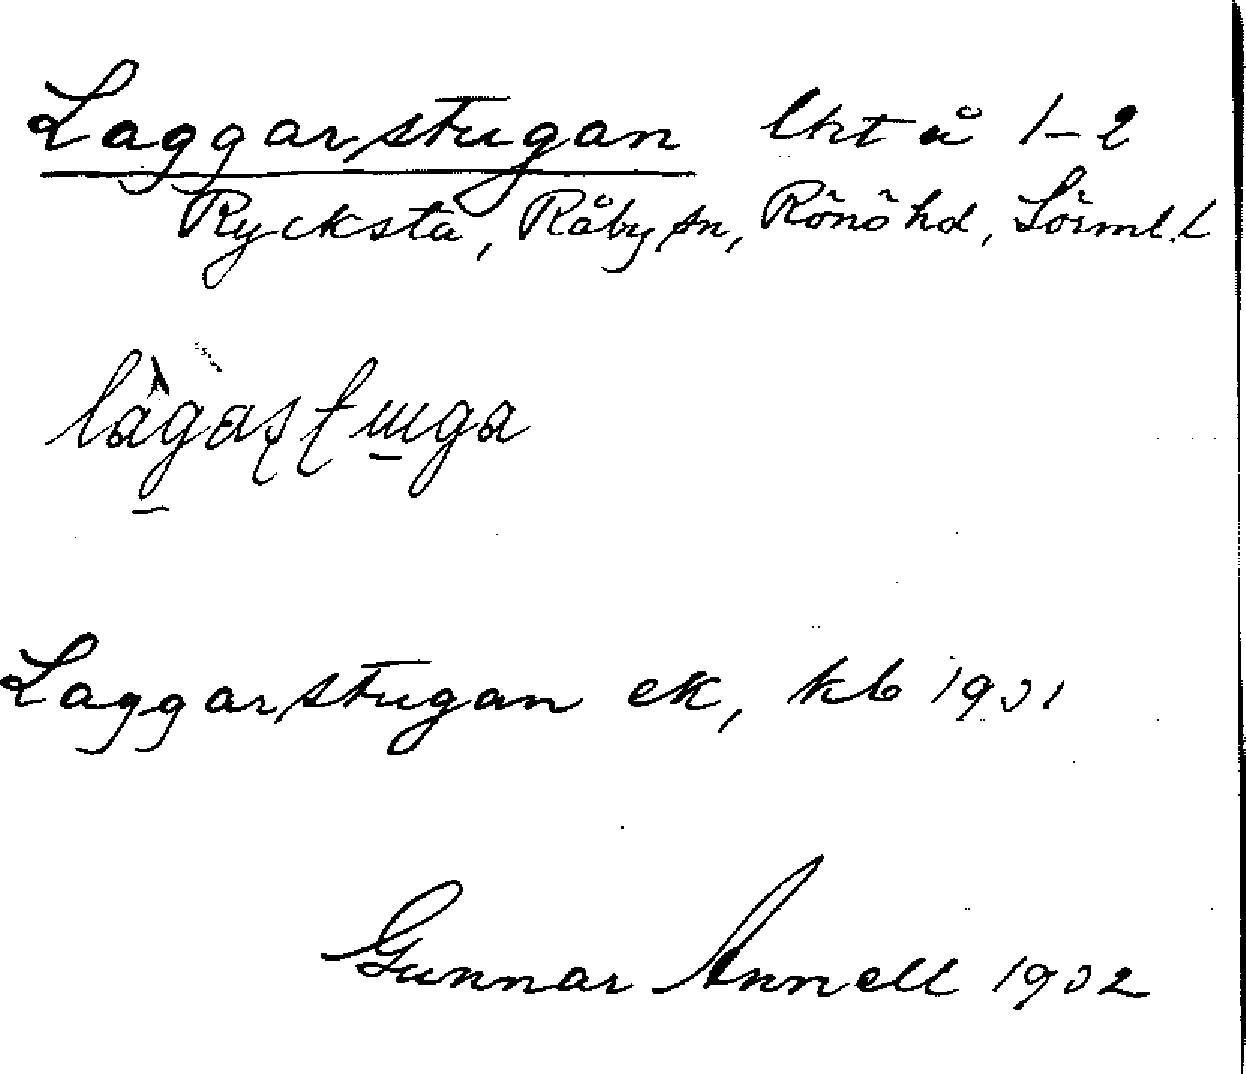 Laggarstugan lht å 1-2
Rycksta, Råby sn, Rönö hd, Sörml. l
Laggarstugan ek, kb 1931
Gunnar Annell 1932